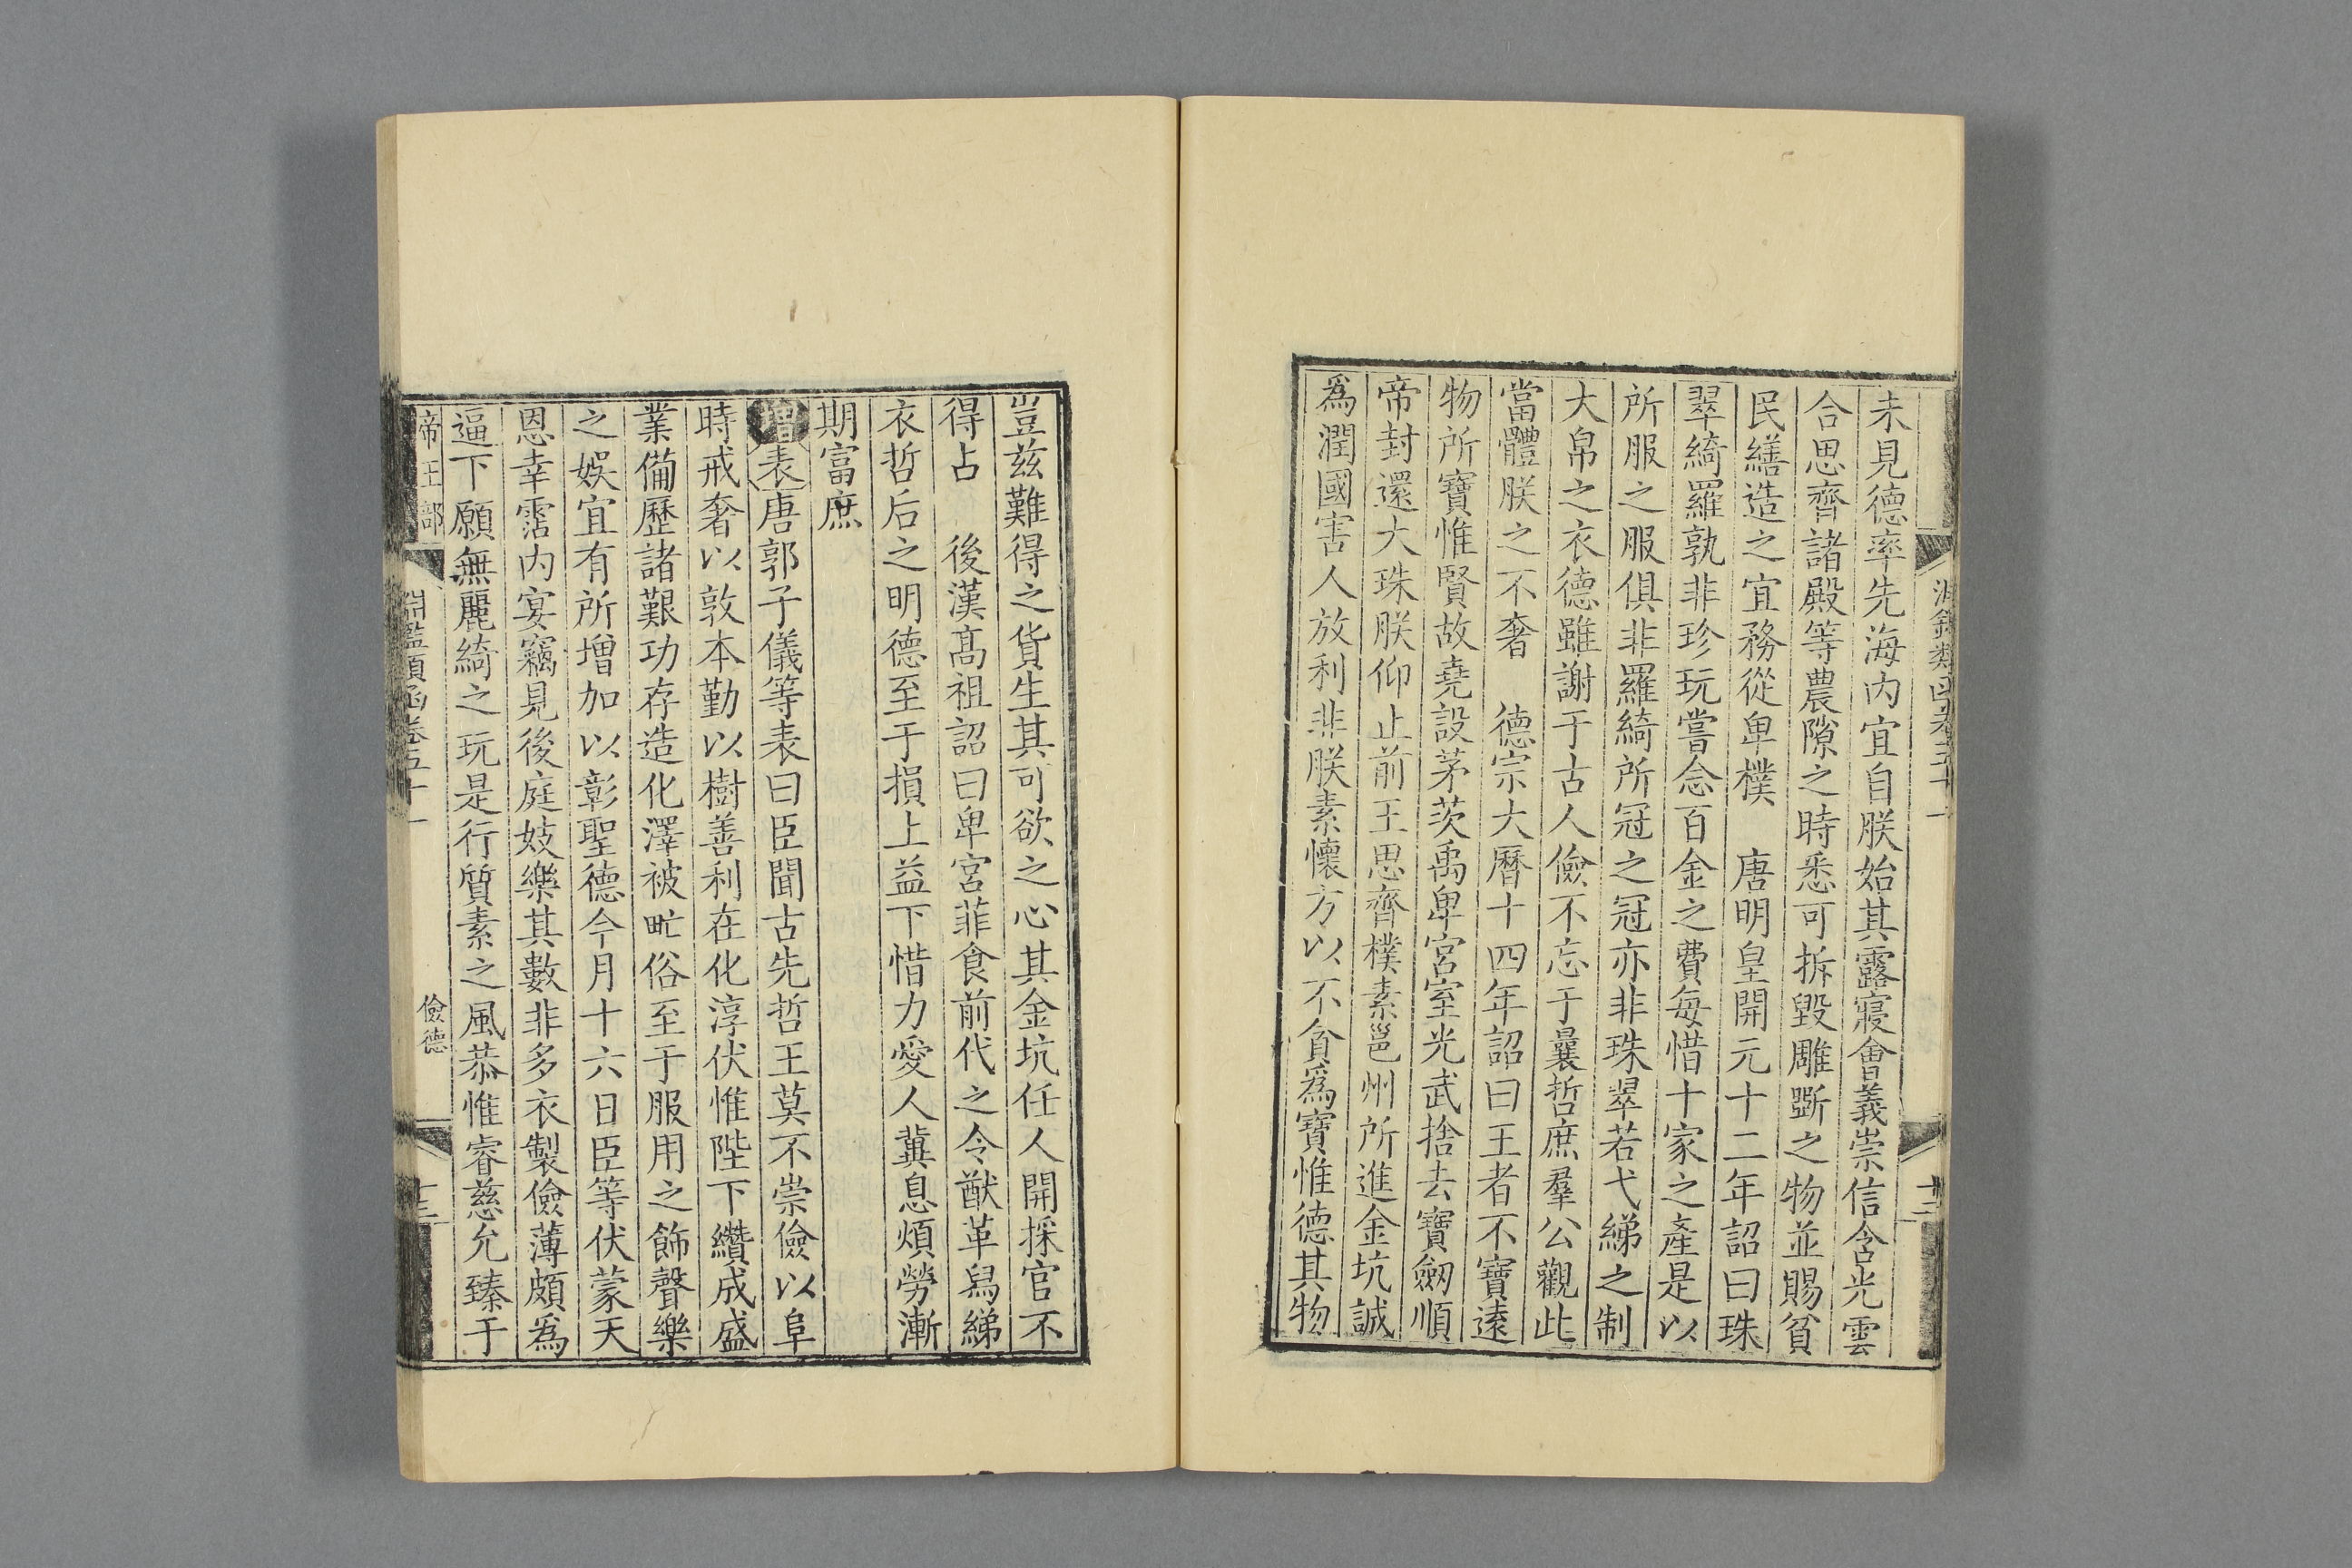 淵鑑類函卷五十一
十二
未見德率先海內宜自朕始其露寢會義崇信含光雲
合思齊諸殿等農隙之時悉可拆毀雕斲之物並賜貧
民繕造之宜務從卑樸　唐明皇開元十二年詔曰珠
翠綺羅孰非珍玩嘗念百金之費每惜十家之產是以
所服之服俱非羅綺所冠之冠亦非珠翠若弋綈之制
大帛之衣德雖謝于古人儉不忘于曩哲庶羣公觀此
當體朕之不奢　德宗大曆十四年詔曰王者不寶遠
物所寶惟賢故堯設茅茨禹卑宮室光武捨去寶劒順
帝封還大珠朕仰止前王思齊樸素邕州所進金坑誠
爲潤國害人放利非朕素懷方以不貪爲寶惟德其物
豈茲難得之貨生其可欲之心其金坑任人開採官不
得占　後漢高祖詔曰卑宮菲食前代之令猷革舄綈
衣哲后之明德至于損上益下惜力愛人冀息煩勞漸
期富庶
增表唐郭子儀等表曰臣聞古先哲王莫不崇儉以阜
時戒奢以敦本勤以樹善利在化淳伏惟陛下纘成盛
業備歷諸艱功存造化澤被甿俗至于服用之飾聲樂
之娛宜有所增加以彰聖德今月十六日臣等伏蒙天
恩幸霑內宴竊見後庭妓樂其數非多衣製儉薄頗爲
逼下願無麗綺之玩是行質素之風恭惟睿慈允臻于
帝王部
淵鑑類函卷五十一
儉德
十三